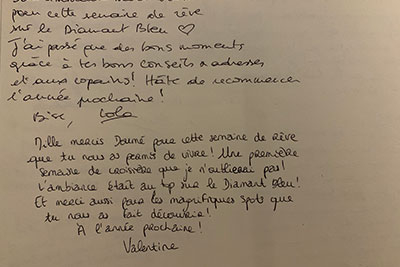 pour cette semaine de rêve
sur le Diamant Bleu ♡
J'ai passé que des bons moments
grâce à tes bons conseils & adresses
et aux copains! Hâte de recommencer
l'année prochaine!
Bise, Lola
Mille mercis Doumé pour cette semaine de rêve
que tu nous as permis de vivre! Une première
semaine de croisière que je n'oublierai pas!
L'ambiance était au top sur le Diamant Bleu!
Et merci aussi pour les magnifiques spots que
tu nous as fait découvrir!
A l'année prochaine!
Valentine